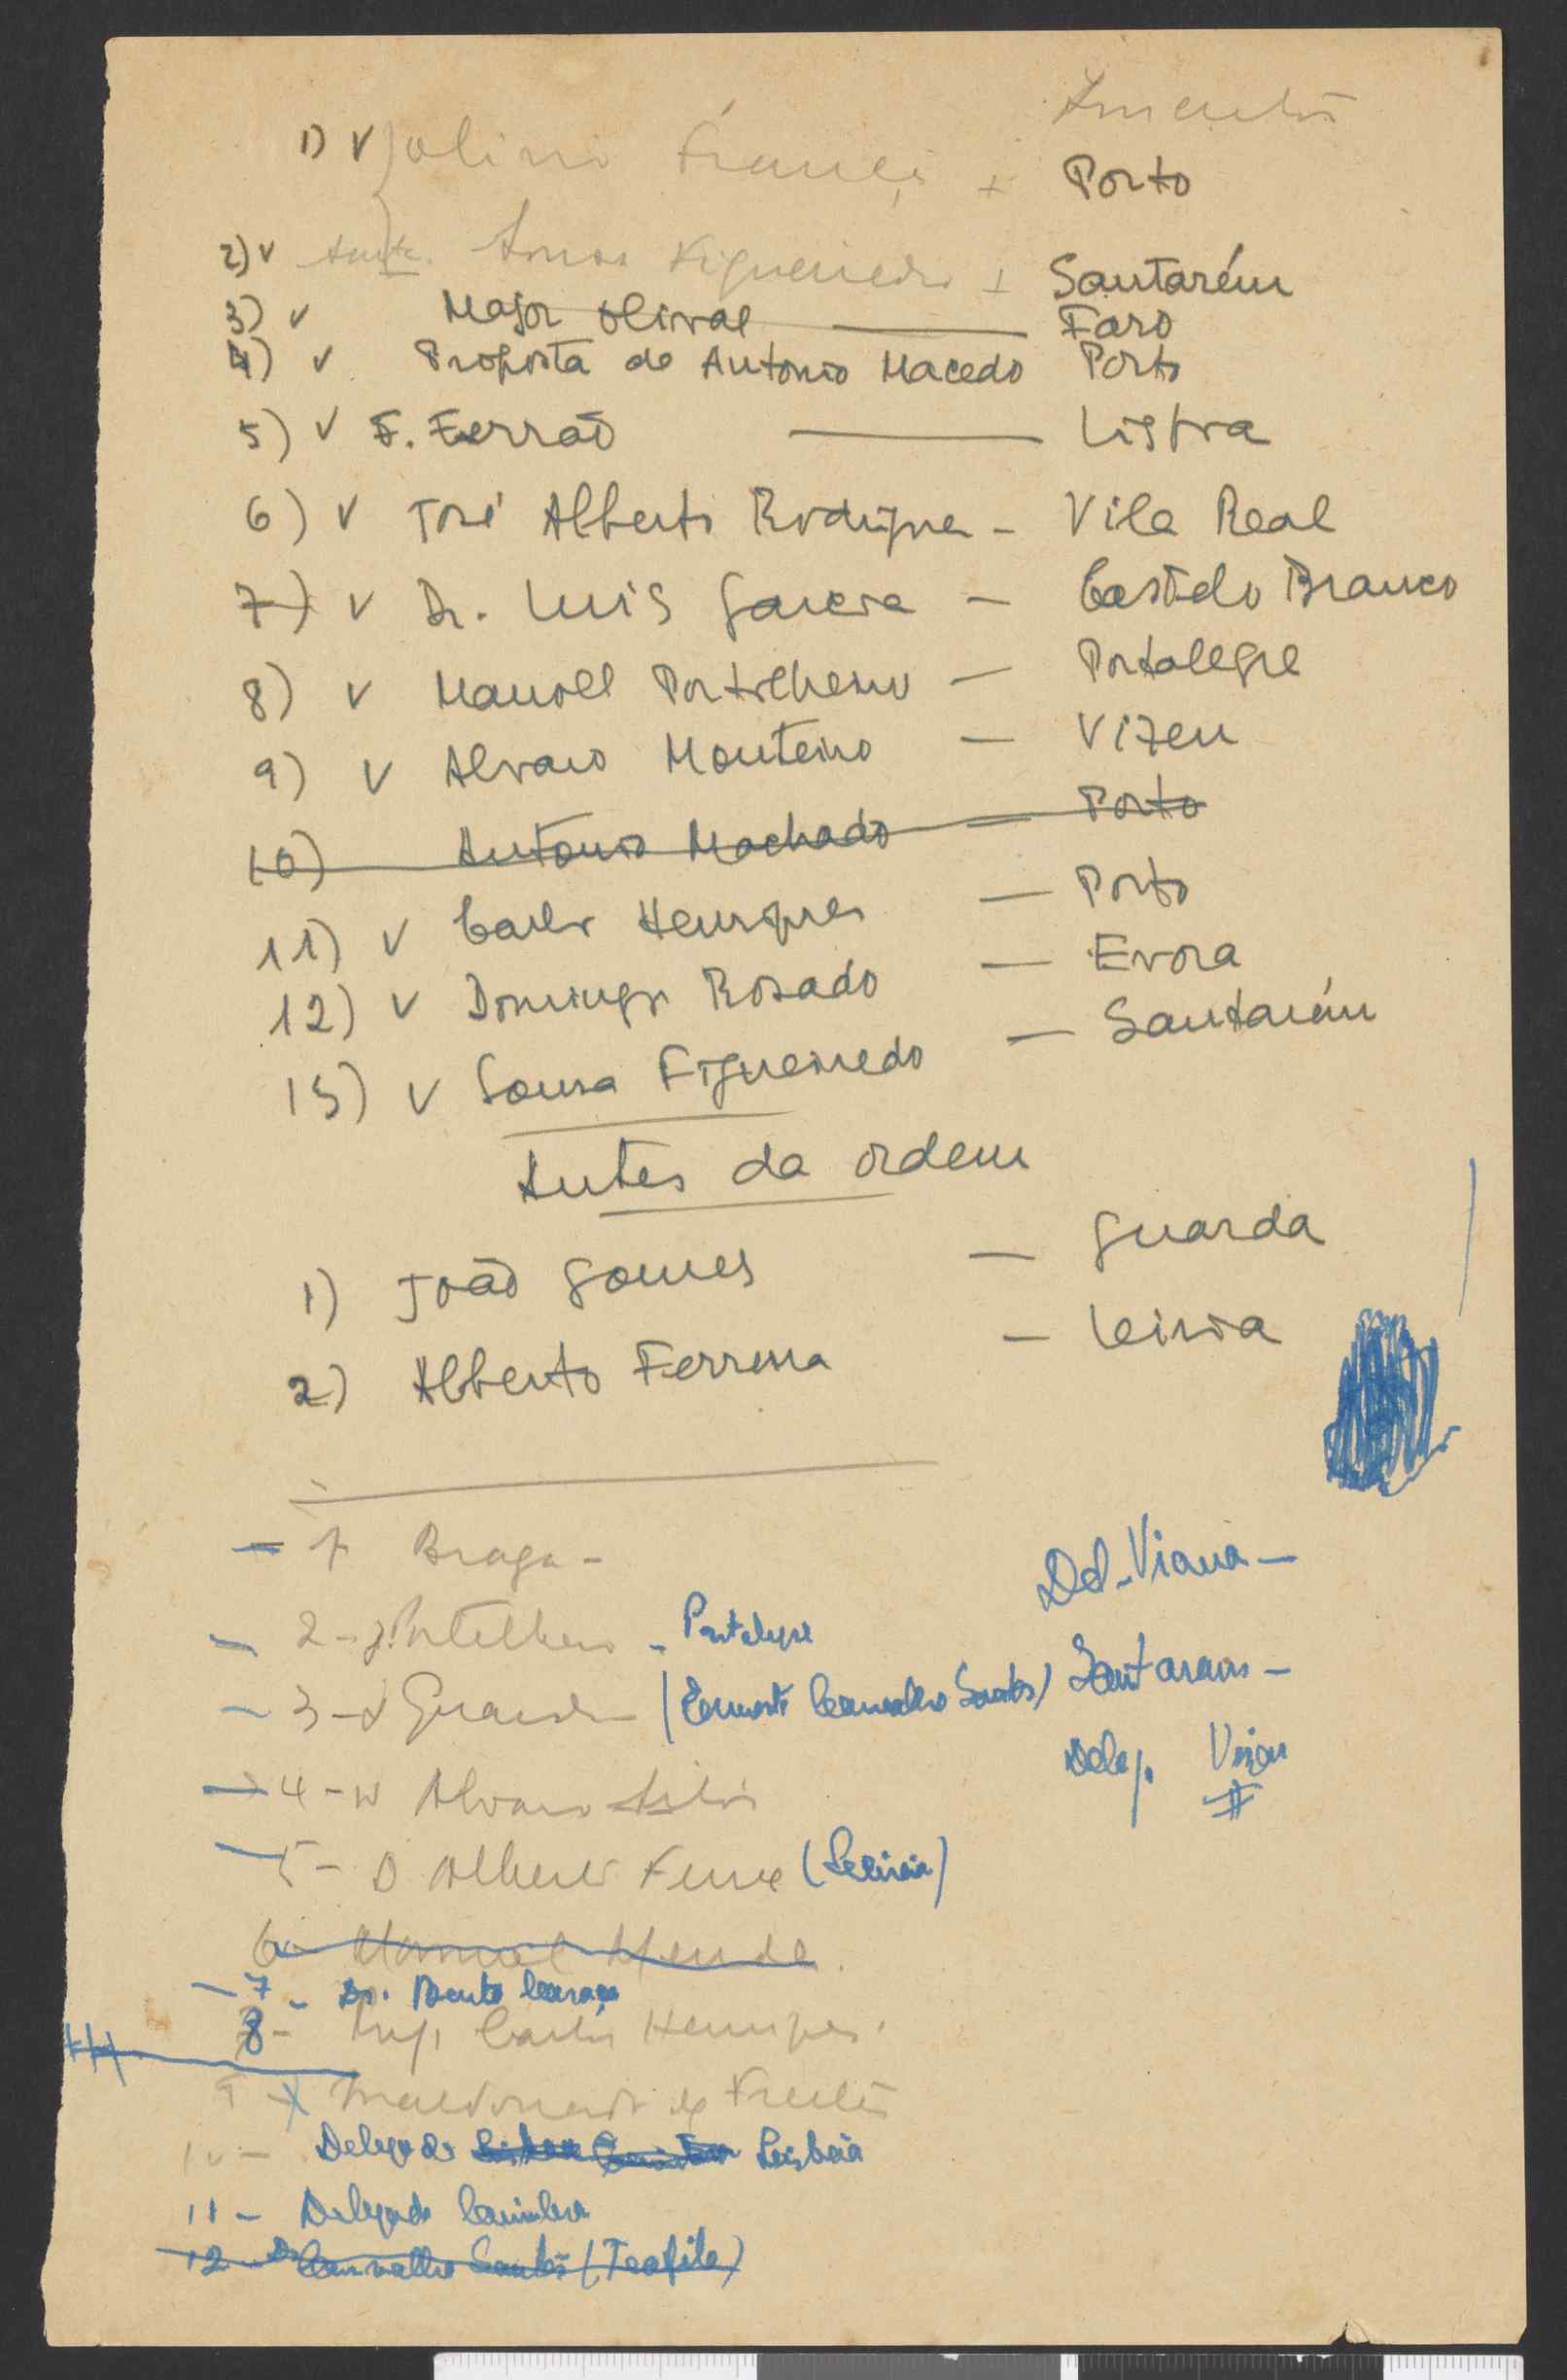 1) V Olivio França + Porto
2) V Sousa Figueiredo + Santarém
3) V Major Olival — Faro
4) V Proposta de Antonio Macedo Porto
5) V F. Ferrão — Lisboa
6) V José Alberto Rodrigues - Vila Real
7) V Dr. Luis Garcia - Castelo Branco
8) V Manoel Portilheiro - Portalegre
9) V Alvaro Monteiro - Vizeu
10) Antonio Machado - Porto
11) V Carlos Henriques - Porto
12) V Domingos Rosado - Evora
13) V Sousa Figueiredo - Santarém
Antes da ordem
1) João Gomes - Guarda
2) Alberto Ferreira - Leiria
- 1 Braga -
Del. Viana -
- 2 - Portilheiro - Portalegre
- 3 - Guarda (Ernesto Carvalho Santos) Santarem -
Deleg. Vizeu
- 4 - Alvaro
- 5 - D Alberto Ferre (Leiria)
6 - Manuel Mendes
- 7 - Dr. Bento Caraça
8 - Carlos Henriques
9 - Maldonado de Freitas
10 - Delegado Lisboa
11 - Delegado Coimbra
12 - Dr Carvalho Santos (Teofilo)